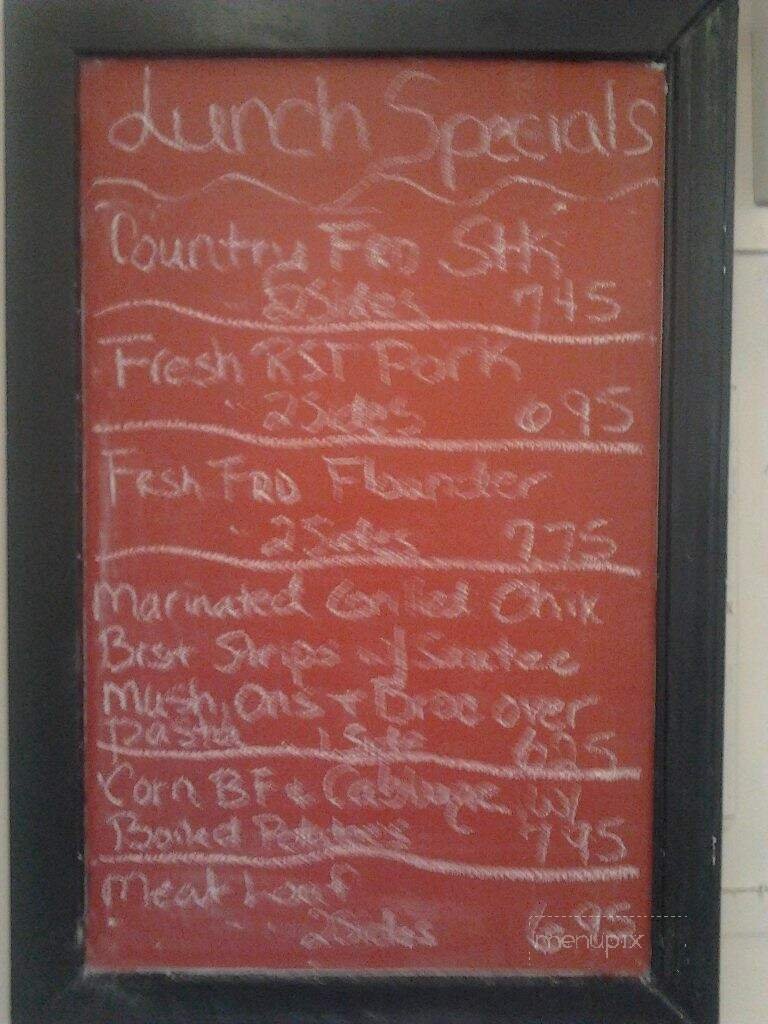 Lunch Specials
Country FRD Stk
2 Sides 745
Fresh RST Pork
2 Sides 695
Frsh FRD Flounder
2 Sides 775
Marinated Grilled Chix
Brst Strips w/ Sautee
Mush, Ons + Broc over
Pasta 1 Side 625
Corn BF & Cabbage w/
Boiled Potatoes 795
Meat Loaf
2 Sides 695
menupix